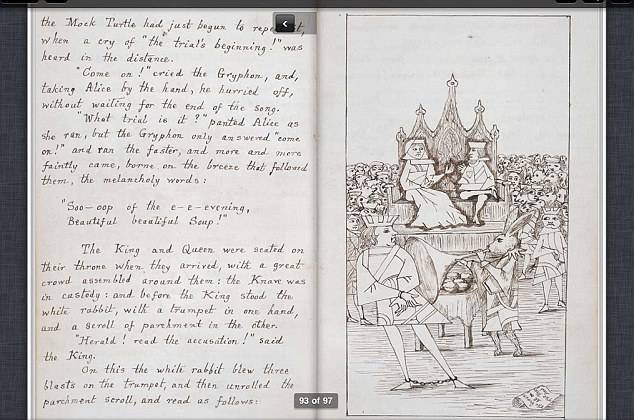 the Mock Turtle had just begun to
when a cry of "the trial's beginning!" was
heard in the distance.
"Come on!" cried the Gryphon, and,
taking Alice by the hand, he hurried off,
without waiting for the end of the song.
"What trial is it?" panted Alice as
she ran, but the Gryphon only answered "come
on!" and ran the faster, and more and more
faintly came, borne on the breeze that followed
them, the melancholy words:
"Soo—oop of the e—e—evening,
Beautiful beautiful Soup!"
The King and Queen were seated on
their throne when they arrived, with a great
crowd assembled around them: the Knave was
in custody: and before the King stood the
white rabbit, with a trumpet in one hand,
and a scroll of parchment in the other.
"Herald! read the accusation!" said
the King.
On this the white rabbit blew three
blasts on the trumpet, and then unrolled the
parchment scroll, and read as follows:
93 of 97